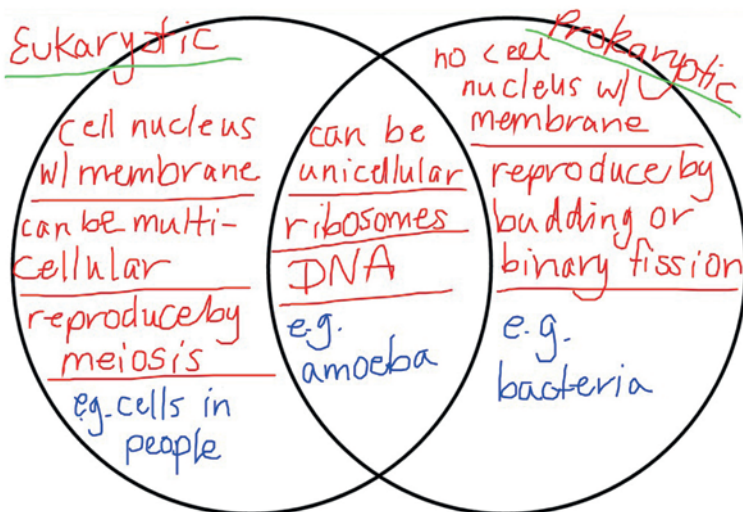 Eukaryotic
cell nucleus
w/ membrane
can be multi-
cellular
reproduce by
meiosis
e.g. cells in
people
can be
unicellular
ribosomes
DNA
e.g.
amoeba
Prokaryotic
no cell
nucleus w/
membrane
reproduce by
budding or
binary fission
e.g.
bacteria